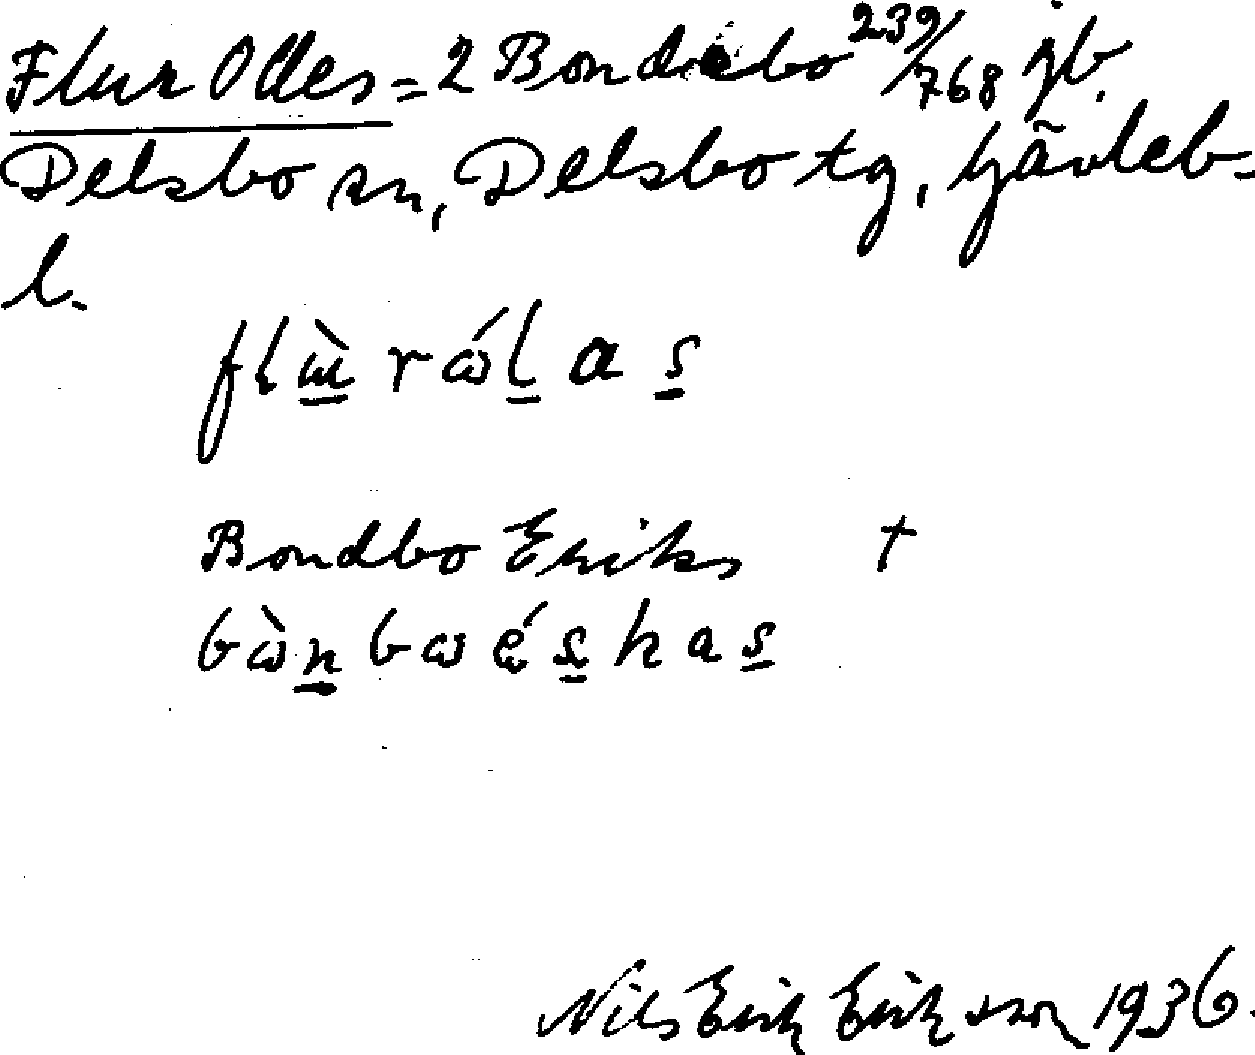 Flur Olles = 2 Bondebo 239/768 jb.
Delsbo sn, Delsbo tg, Gävleb-
l.
Bondbo Eriks +
Nils Erik Eriksson 1936.